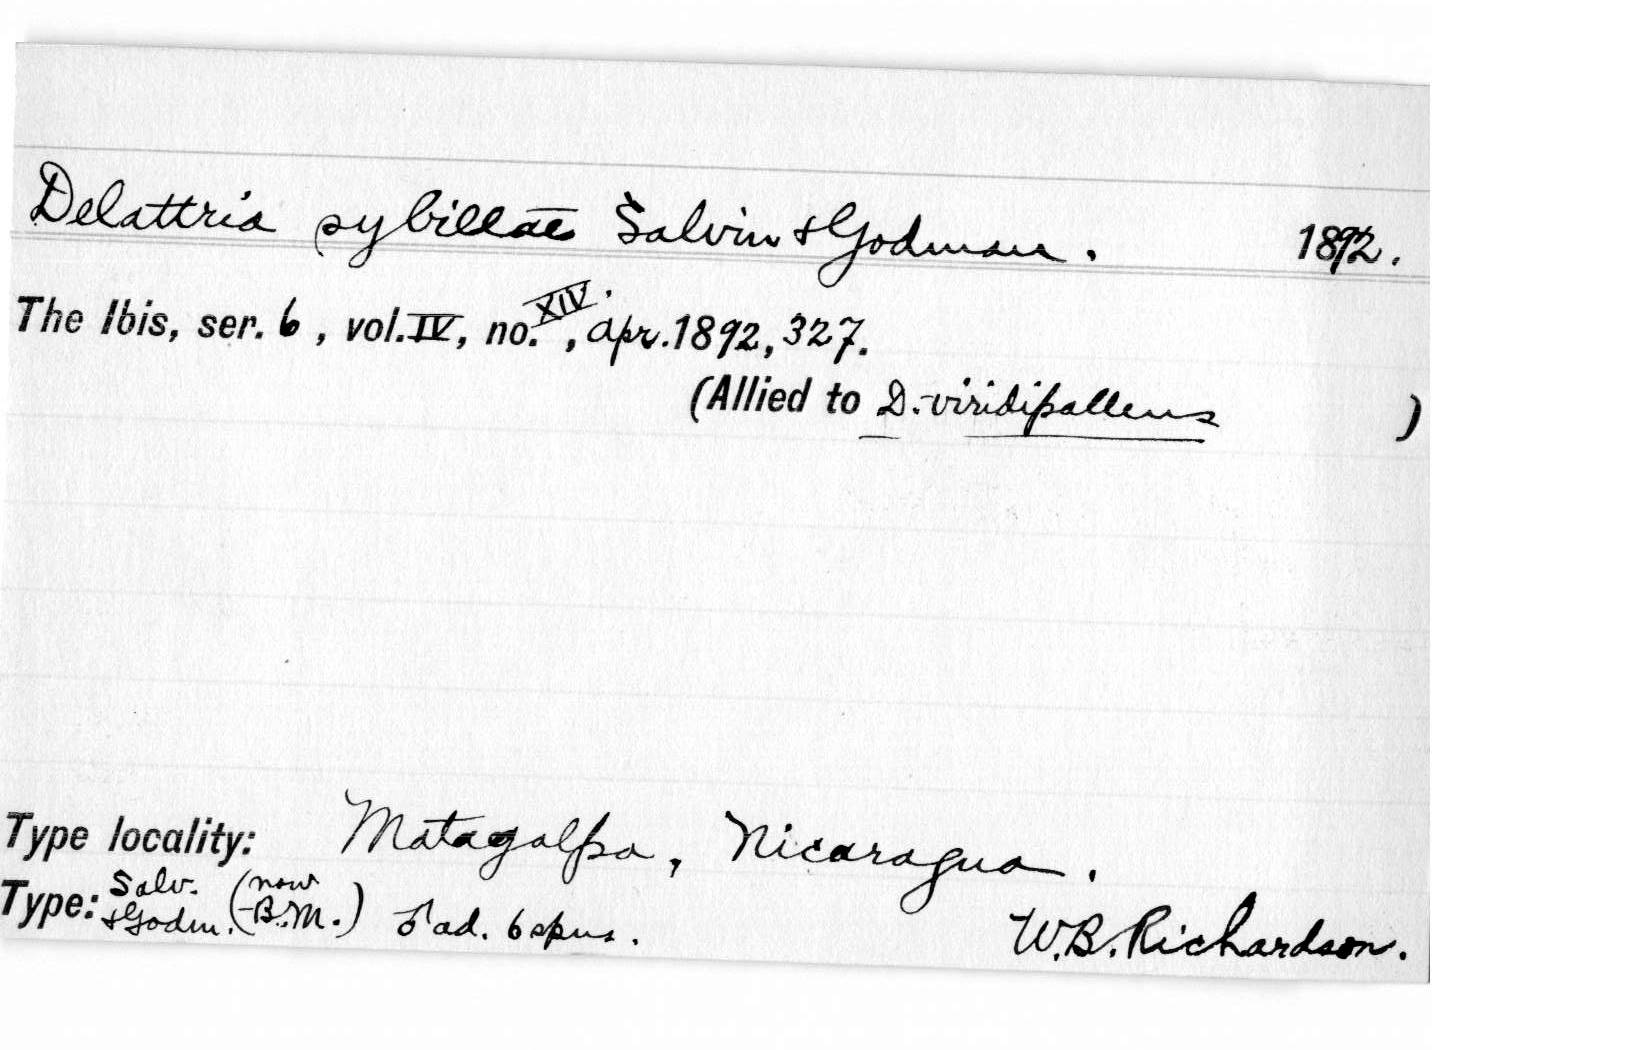 Delattria sybillae Salvin & Godman. 1892.
The Ibis, ser. 6, vol. IV, no. XIV., Apr. 1892, 327.
(Allied to D. viridipallens)
Type locality: Matagalpa, Nicaragua.
Type: Salv. & Godm. (now B.M.) ♂ ad. 6 spms. W.B. Richardson.